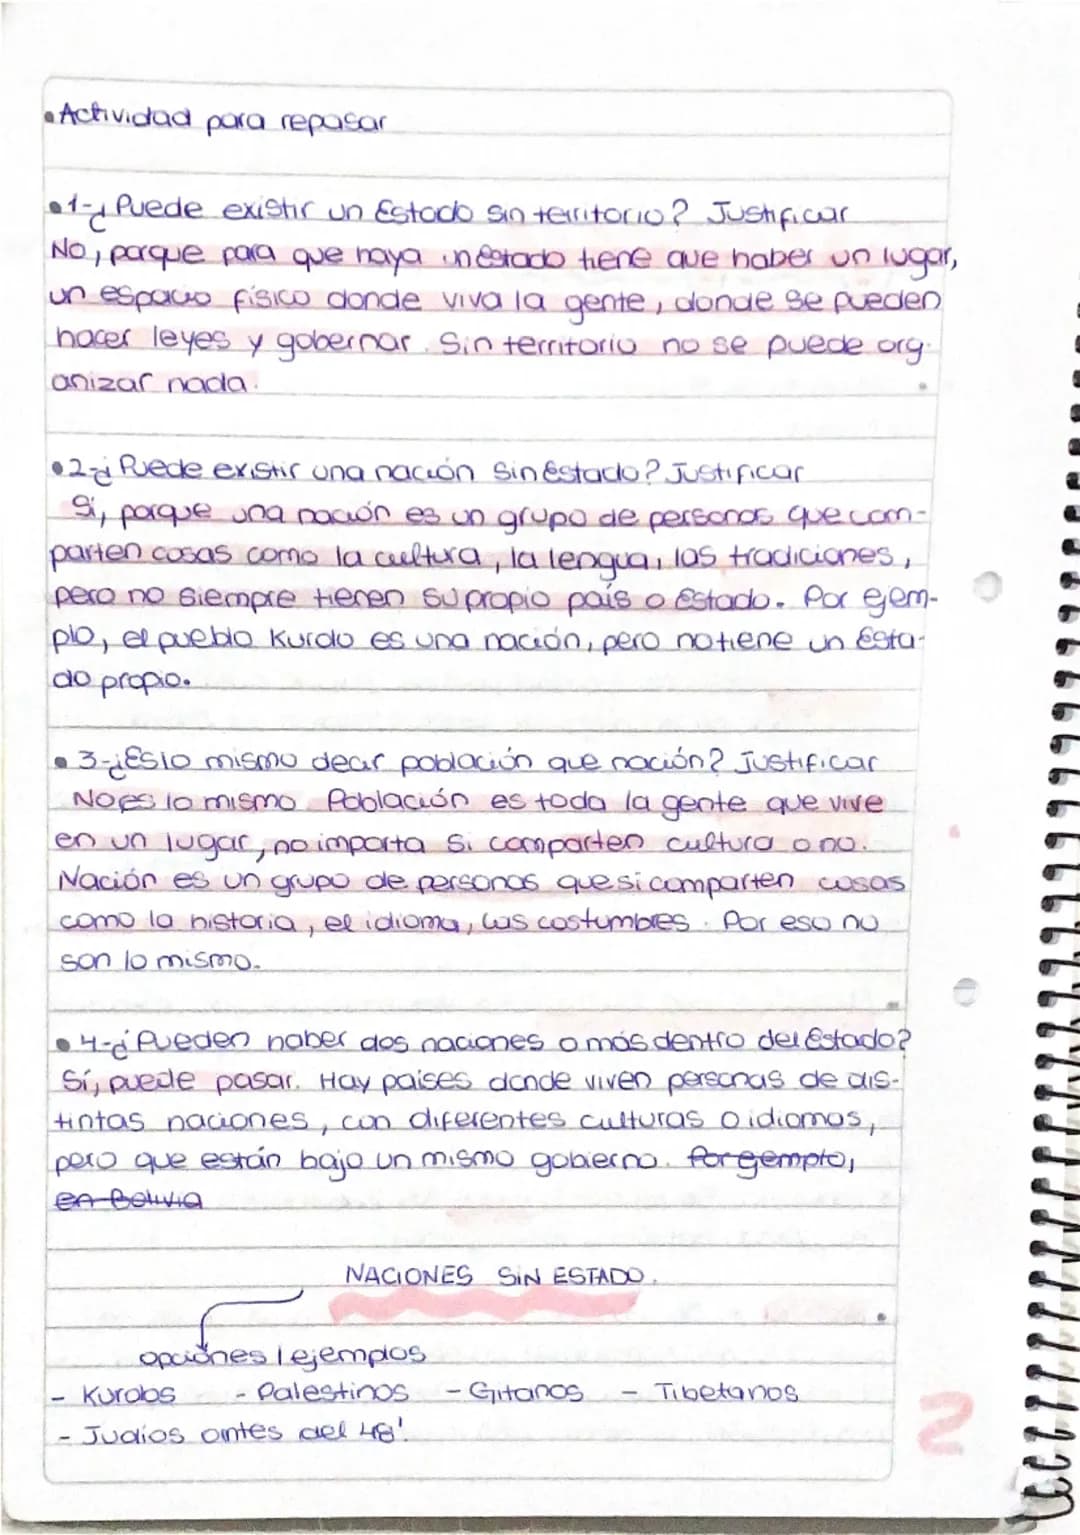 • Actividad para repasar
• 1-¿Puede existir un Estado sin territorio? Justificar
No, porque para que haya un Estado tiene que haber un lugar,
un espacio físico donde viva la gente, donde se pueden
hacer leyes y gobernar. Sin territorio no se puede org-
anizar nada.
• 2-¿Puede existir una nación sin Estado? Justificar
Si, porque una nación es un grupo de personas que com-
parten cosas como la cultura, la lengua, las tradiciones,
pero no siempre tienen su propio país o Estado. Por ejem-
plo, el pueblo Kurdo es una nación, pero no tiene un Esta-
do propio.
• 3-¿Es lo mismo decir población que nación? Justificar
No es lo mismo. Población es toda la gente que vive
en un lugar, no importa si comparten cultura o no.
Nación es un grupo de personas que si comparten cosas
como la historia, el idioma, las costumbres. Por eso no
son lo mismo.
• 4-¿Pueden haber dos naciones o más dentro del Estado?
Sí, puede pasar. Hay países donde viven personas de dis-
tintas naciones, con diferentes culturas o idiomas,
pero que están bajo un mismo gobierno. Por ejemplo,
en Bolivia
NACIONES SIN ESTADO.
opciones / ejemplos
- Kurdos - Palestinos - Gitanos - Tibetanos
- Judios antes del 48'.
2